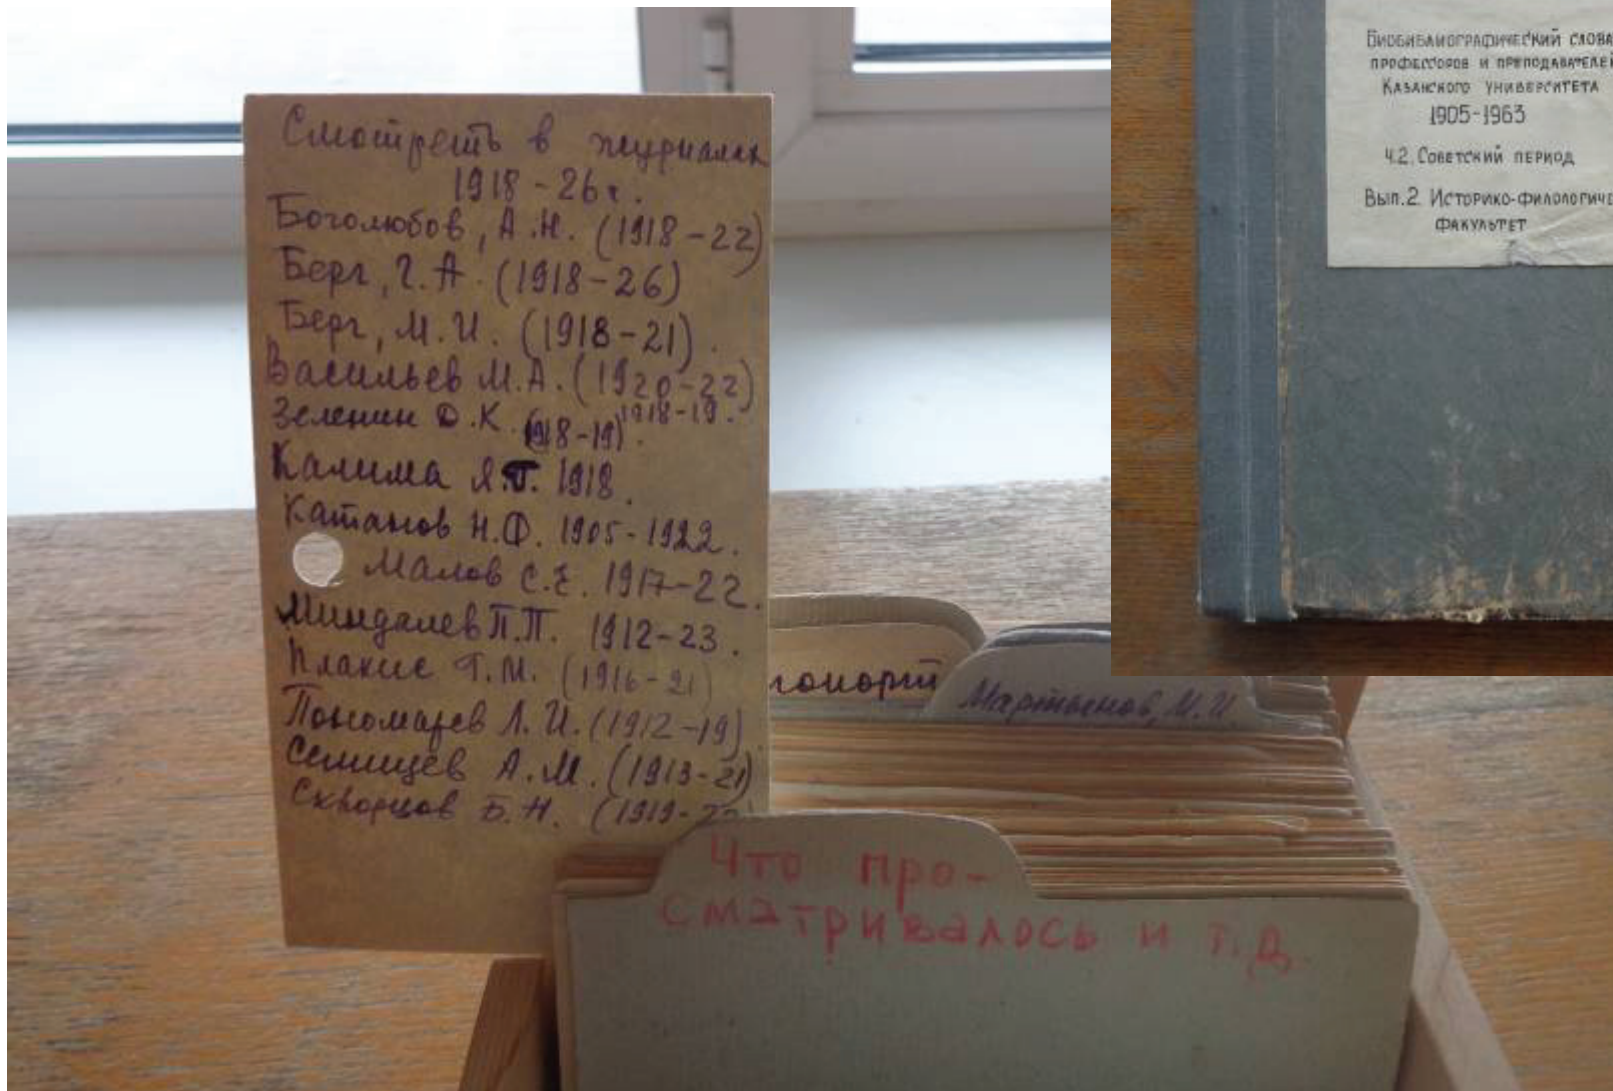 Смотреть в журналах
1918 - 26 г.
Боголюбов, А.Н. (1918-22)
Берг, Г.А. (1918-26)
Берг, М.И. (1918-21).
Васильев М.А. (1920-22)
Зеленин Д.К. (1918-19). 1918-19.
Калима Я. 1918.
Катанов Н.Ф. 1905-1922.
Малов С.Е. 1917-22.
Миндалев П.П. 1912-23.
Плакис Г.М. (1916-21)
Пономарев Л.И. (1912-19)
Селищев А.М. (1913-21)
Скворцов Б.Н. (1919-
Мартынов, М.И.
Что про-
сматривалось и т.д.
Биобиблиографический слова
профессоров и преподавателей
Казанского университета
1905-1963
Ч.2. Советский период
Вып.2. Историко-филологиче
факультет